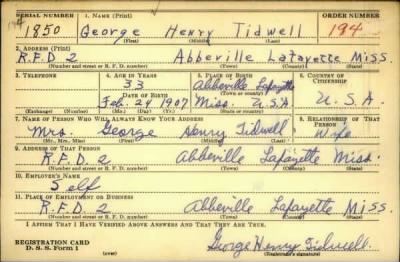 SERIAL NUMBER 1. NAME (Print) ORDER NUMBER
1850 George Henry Tidwell 194
(First) (Middle) (Last)
2. ADDRESS (Print)
R.F.D 2 Abbeville Lafayette Miss.
(Number and street or R. F. D. number) (Town) (County) (State)
3. TELEPHONE 4. AGE IN YEARS 5. PLACE OF BIRTH 6. COUNTRY OF CITIZENSHIP
33 Abbeville Lafayette
DATE OF BIRTH (Town or county)
Feb. 24 1907 Miss. U.S.A. U.S.A.
(Exchange) (Number) (Mo.) (Day) (Yr.) (State or country)
7. NAME OF PERSON WHO WILL ALWAYS KNOW YOUR ADDRESS 8. RELATIONSHIP OF THAT PERSON
Mrs. George Henry Tidwell Wife
(Mr., Mrs., Miss) (First) (Middle) (Last)
9. ADDRESS OF THAT PERSON
R.F.D. 2 Abbeville Lafayette Miss.
(Number and street or R. F. D. number) (Town) (County) (State)
10. EMPLOYER'S NAME
Self
11. PLACE OF EMPLOYMENT OR BUSINESS
R.F.D. 2 Abbeville Lafayette Miss.
(Number and street or R. F. D. number) (Town) (County) (State)
I AFFIRM THAT I HAVE VERIFIED ABOVE ANSWERS AND THAT THEY ARE TRUE.
REGISTRATION CARD George Henry Tidwell
D. S. S. Form 1 (over) (Registrant's signature)